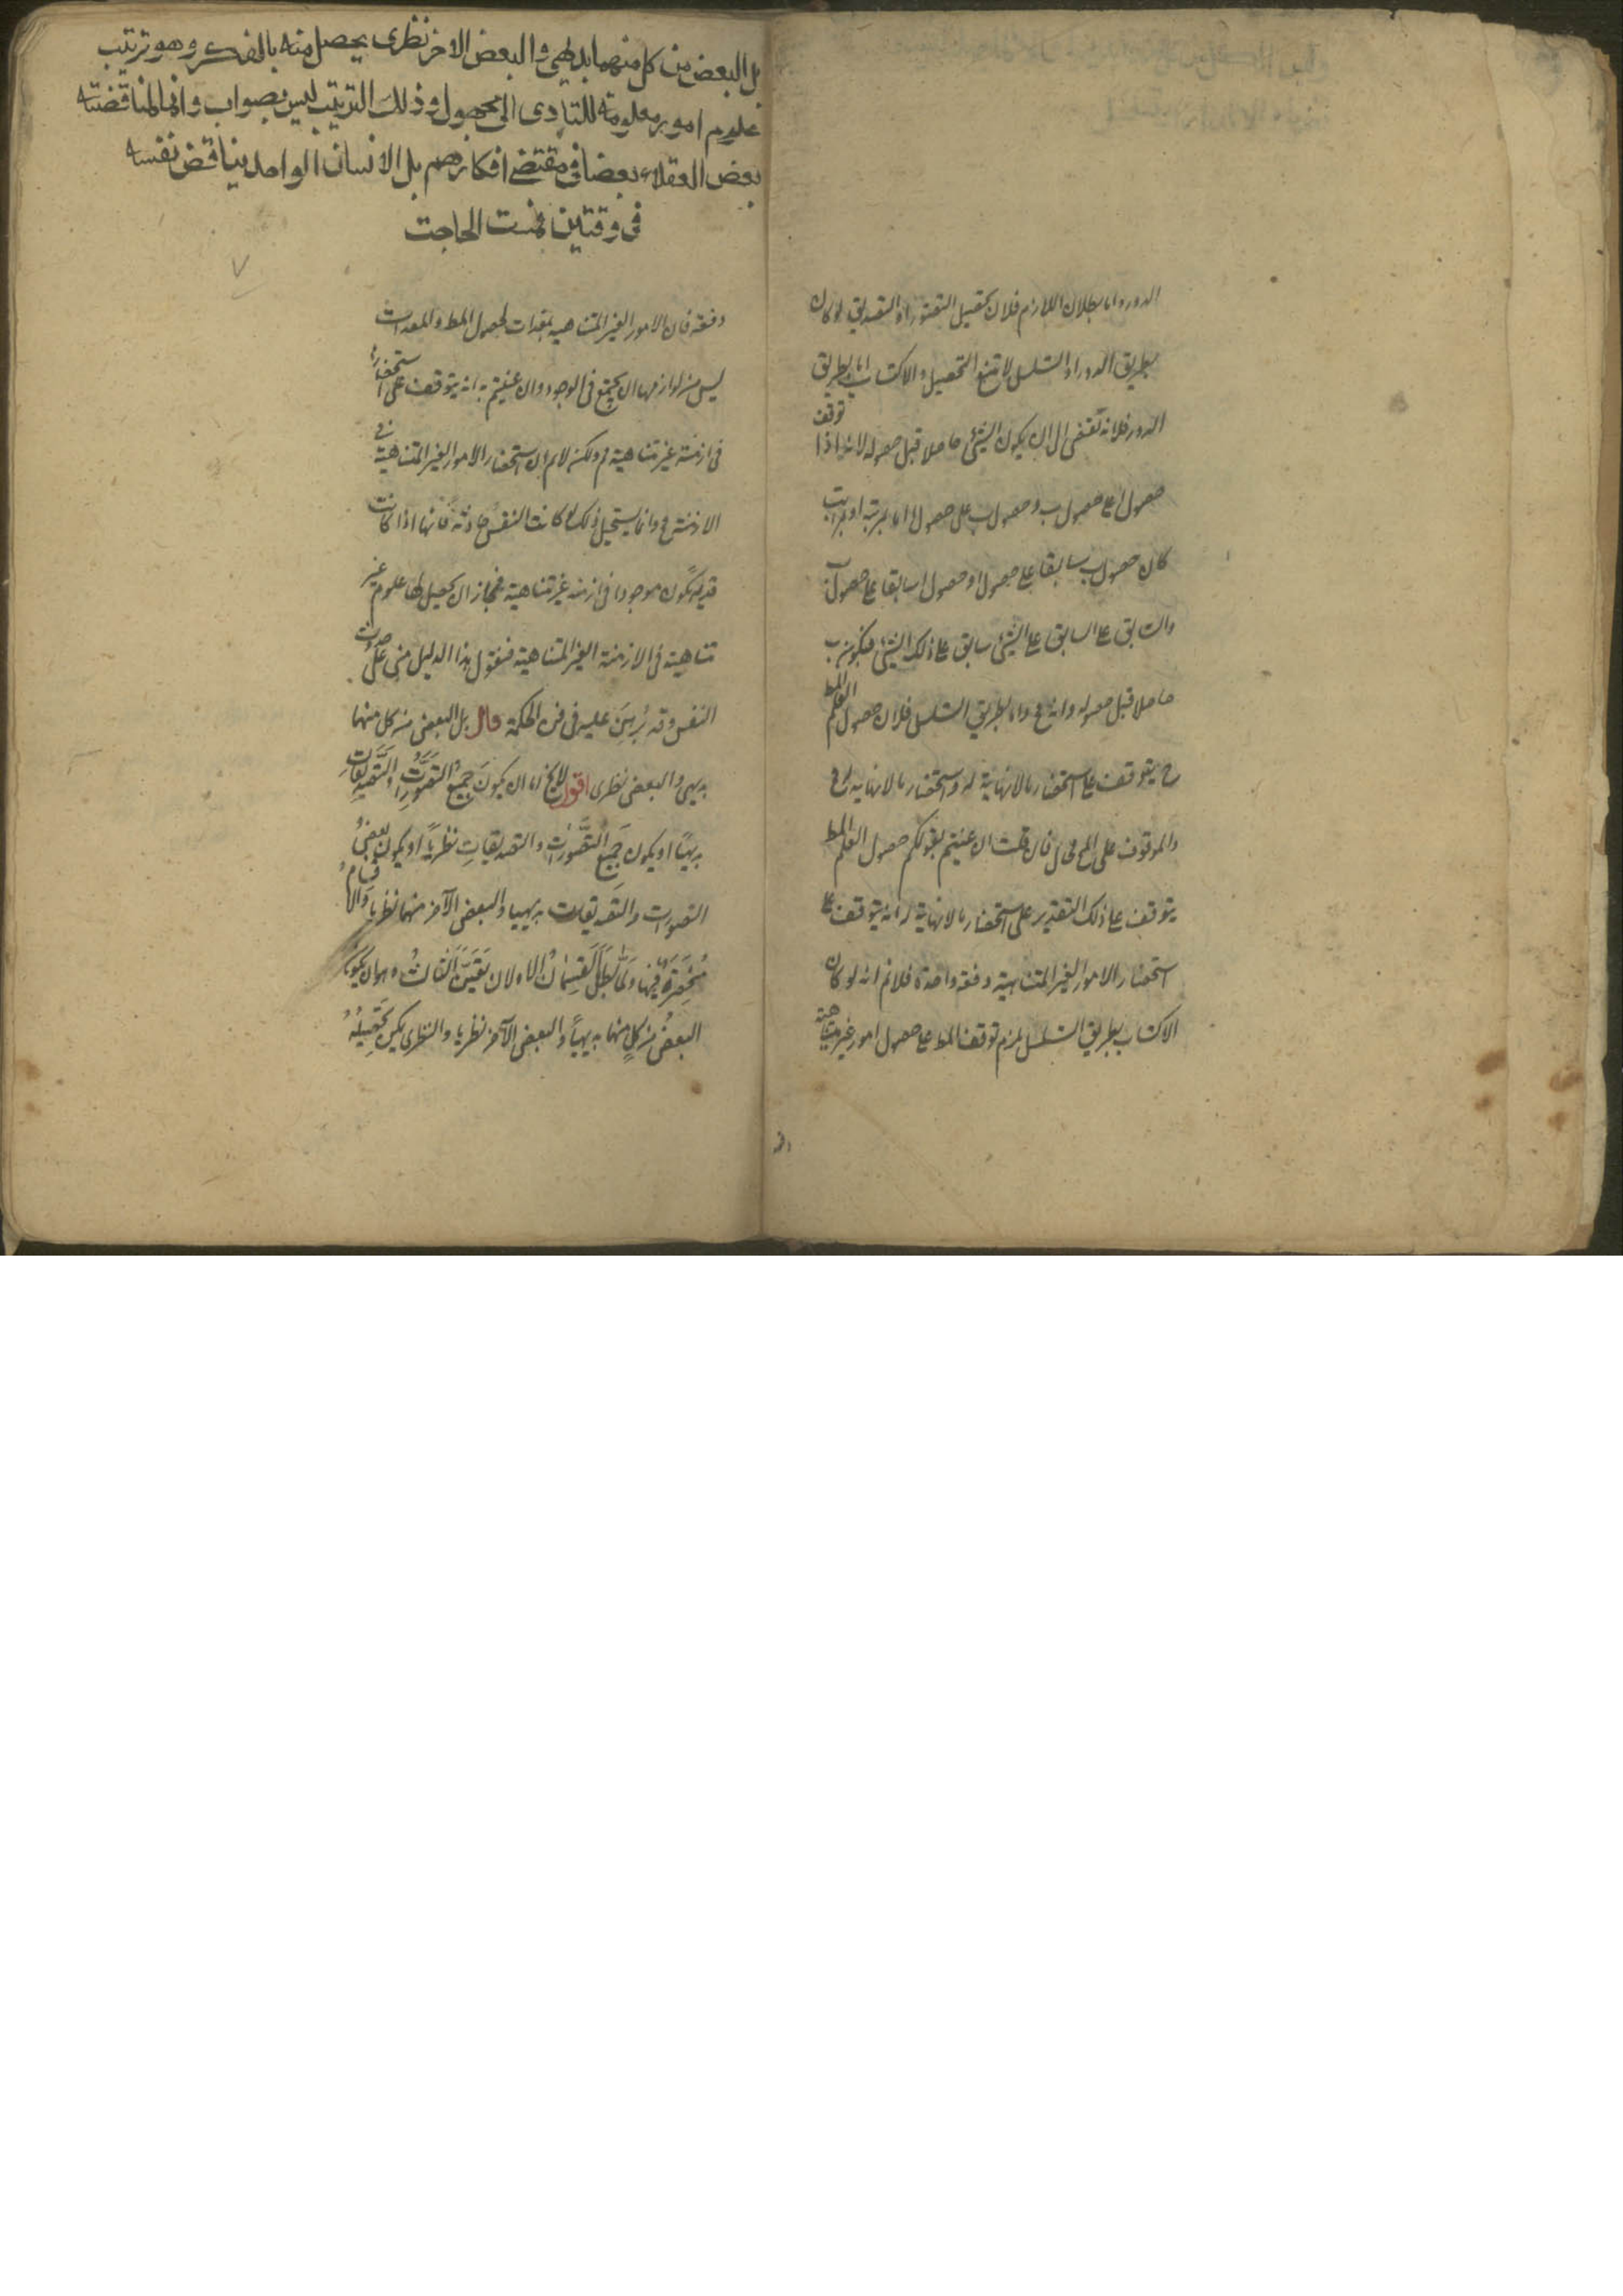 الدور واما بطلان اللازم فلان تحصيل التصور او التصديق لو كان
بطريق الدور او التسلسل لامتنع التحصيل والاكتساب اما بطريق
الدور فلانه يفضى الى ان يكون الشئ حاصلا قبل حصوله لانه اذا توقف
حصول ا على حصول ب وحصول ب على حصول ا اما بمرتبة او بمراتب
كان حصول ب سابقا على حصول ا وحصول ا سابقا على حصول ب
والسابق على السابق على الشئ سابق على ذلك الشئ فيكون ب
حاصلا قبل حصوله وانه مح واما بطريق التسلسل فلان حصول العلم المط
ح يتوقف على استحضار مالانهاية له واستحضار مالانهاية له مح
والموقوف على المح محال فان قلت ان عنيتم بقولكم حصول العلم المط
يتوقف على ذلك التقدير على استحضار مالانهاية له انه يتوقف على
استحضار الامور الغير المتناهية دفعة واحدة فلانم انه لو كان
الاكتساب بطريق التسلسل يلزم توقف المط على حصول امور غير متناهية
دفعة
بل البعض من كل منهما بديهى والبعض الاخر نظرى يحصل منه بالفكر وهو ترتيب
علوم امور معلومة للتادى الى مجهول وذلك الترتيب ليس بصواب دائما لمناقضته
بعض العقلاء بعضا فى مقتضى افكارهم بل الانسان الواحد يناقض نفسه
فى وقتين فمست الحاجت
٧
دفعة فان الامور الغير المتناهية معدات لحصول المط والمعدات
ليس من لوازمها ان يجتمع فى الوجود وان عنيتم به انه يتوقف على استحضارها
فى ازمنة غير متناهية فم ولكن لانم ان استحضار الامور الغير المتناهية فى
الازمنة مح وانما يستحيل ذلك لو كانت النفس حادثة فانها اذا كانت
قديمة تكون موجودا فى ازمنة غير متناهية فجاز ان يحصل لها علوم غير
متناهية فى الازمنة الغير المتناهية فنقول هذا الدليل مبنى على حدوث
النفس وقد بُرهِنَ عليه فى فن الحكمة قال بل البعض من كل منهما
بديهى والبعض نظرى اقول لايخ اما ان يكونَ جميعُ التصوراتِ والتصديقاتِ
بديهيًا او يكون جميعُ التصوراتِ والتصديقاتِ نظريًا او يكون بعضُ
التصورات والتصديقات بديهيا والبعض الآخر منهما نظريا والاقسامُ
مُنحصِرةٌ فيها ولَمَّا بَطلَ القِسمانُ الاولان تَعَيَّنَ الثالثُ وهو ان يكون
البعضُ من كلٍ منهما بديهيًا والبعض الآخر نظريا والنظرى يمكن تحصيلُهُ